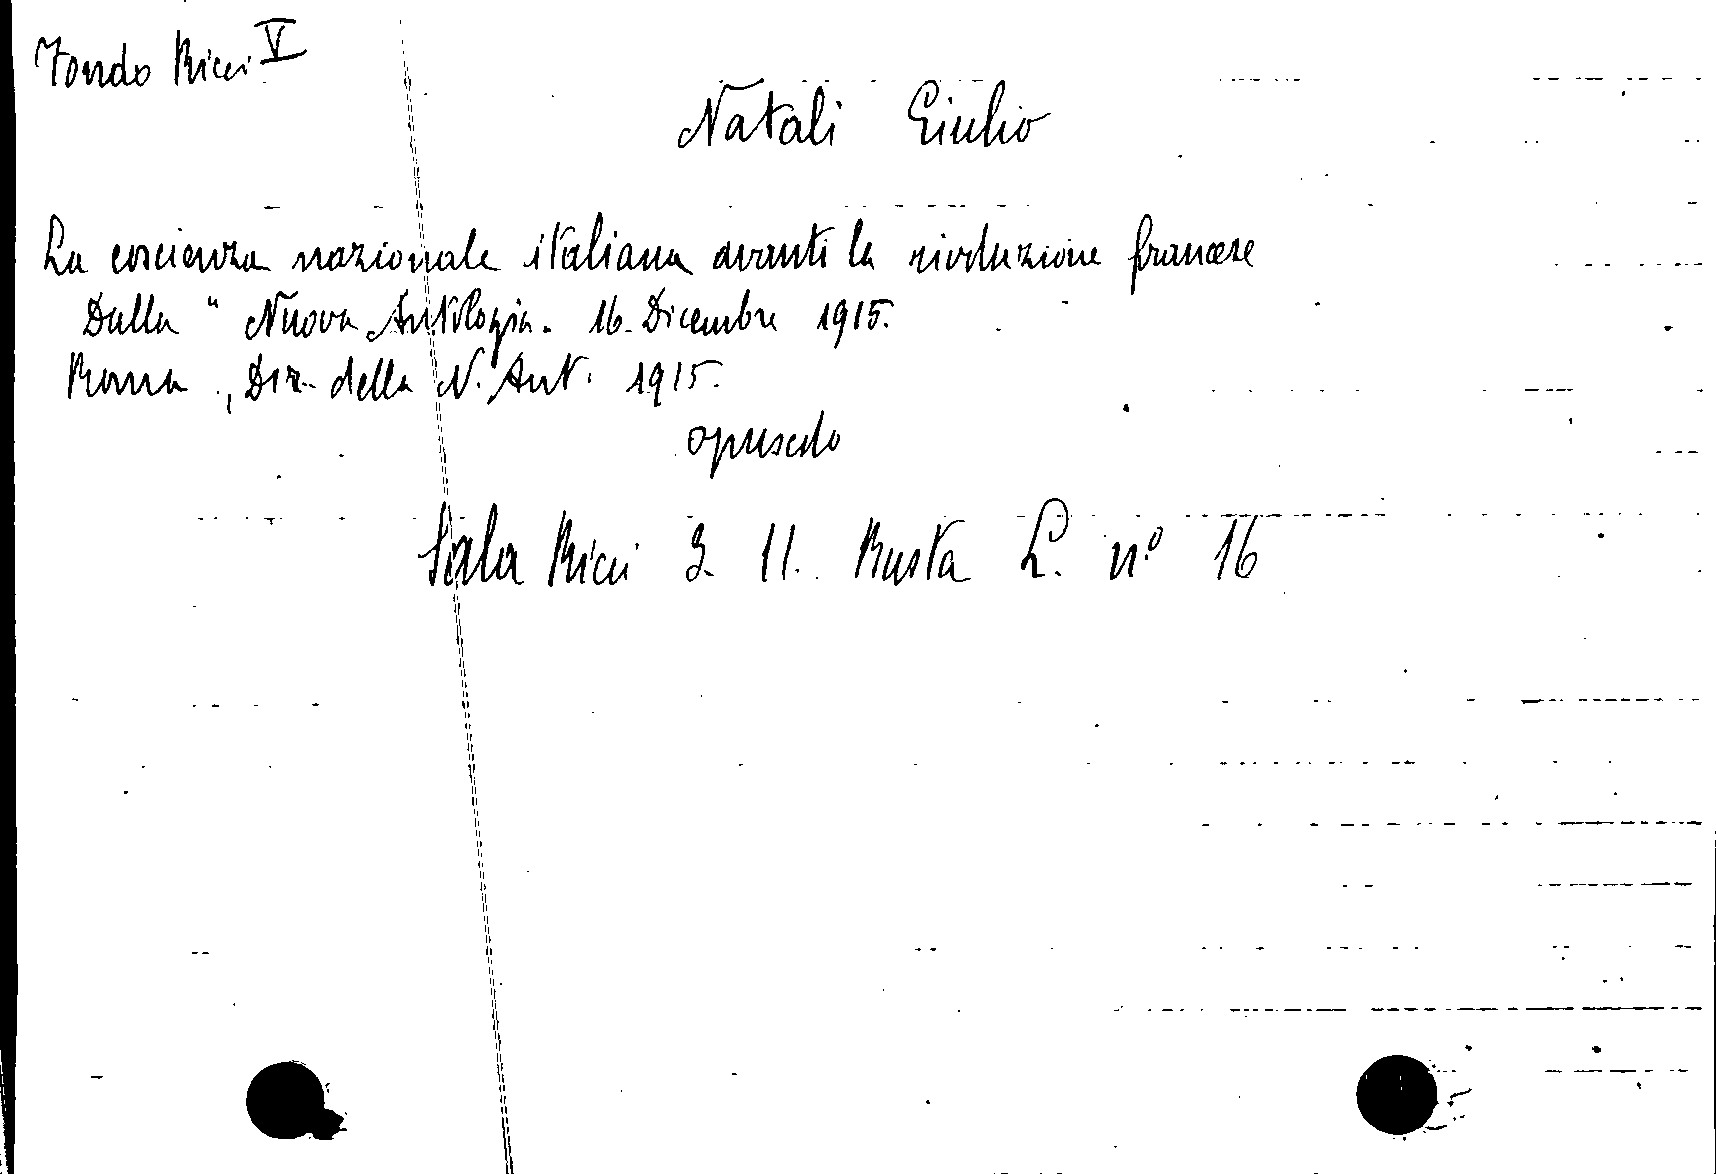 Fondo Ricci V
Natali Giulio
La coscienza nazionale italiana avanti la rivoluzione francese
Dalla " Nuova Antologia. 16. Dicembre 1915.
Roma, Dir. della N. Ant. 1915.
opuscolo
Sala Ricci 3. 11. Busta L. nº 16